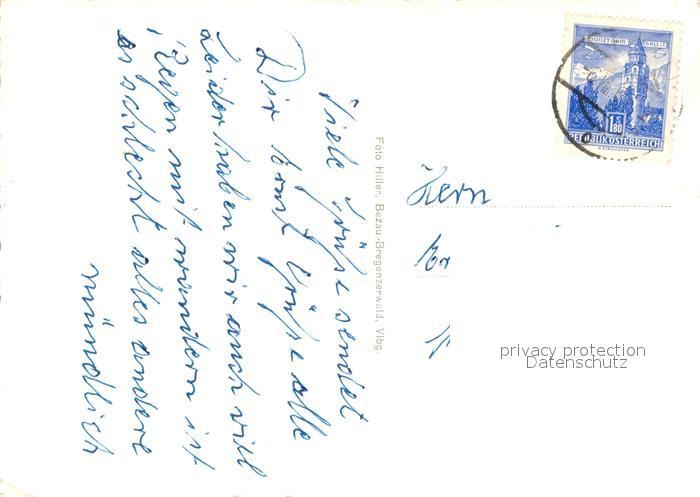 Viele Grüße sendet
Dir Ernst Grüße alle
Leider haben wir auch viel
Regen mit wandern ist
es schlecht alles andere
mündlich
Foto Hiller, Bezau-Bregenzerwald, Vlbg.
Herrn
Er
MÜNZTURM HALL i. T.
1 S 80
REPUBLIK ÖSTERREICH
privacy protection
Datenschutz